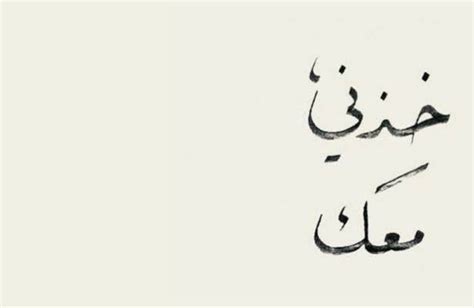 خذني
معك